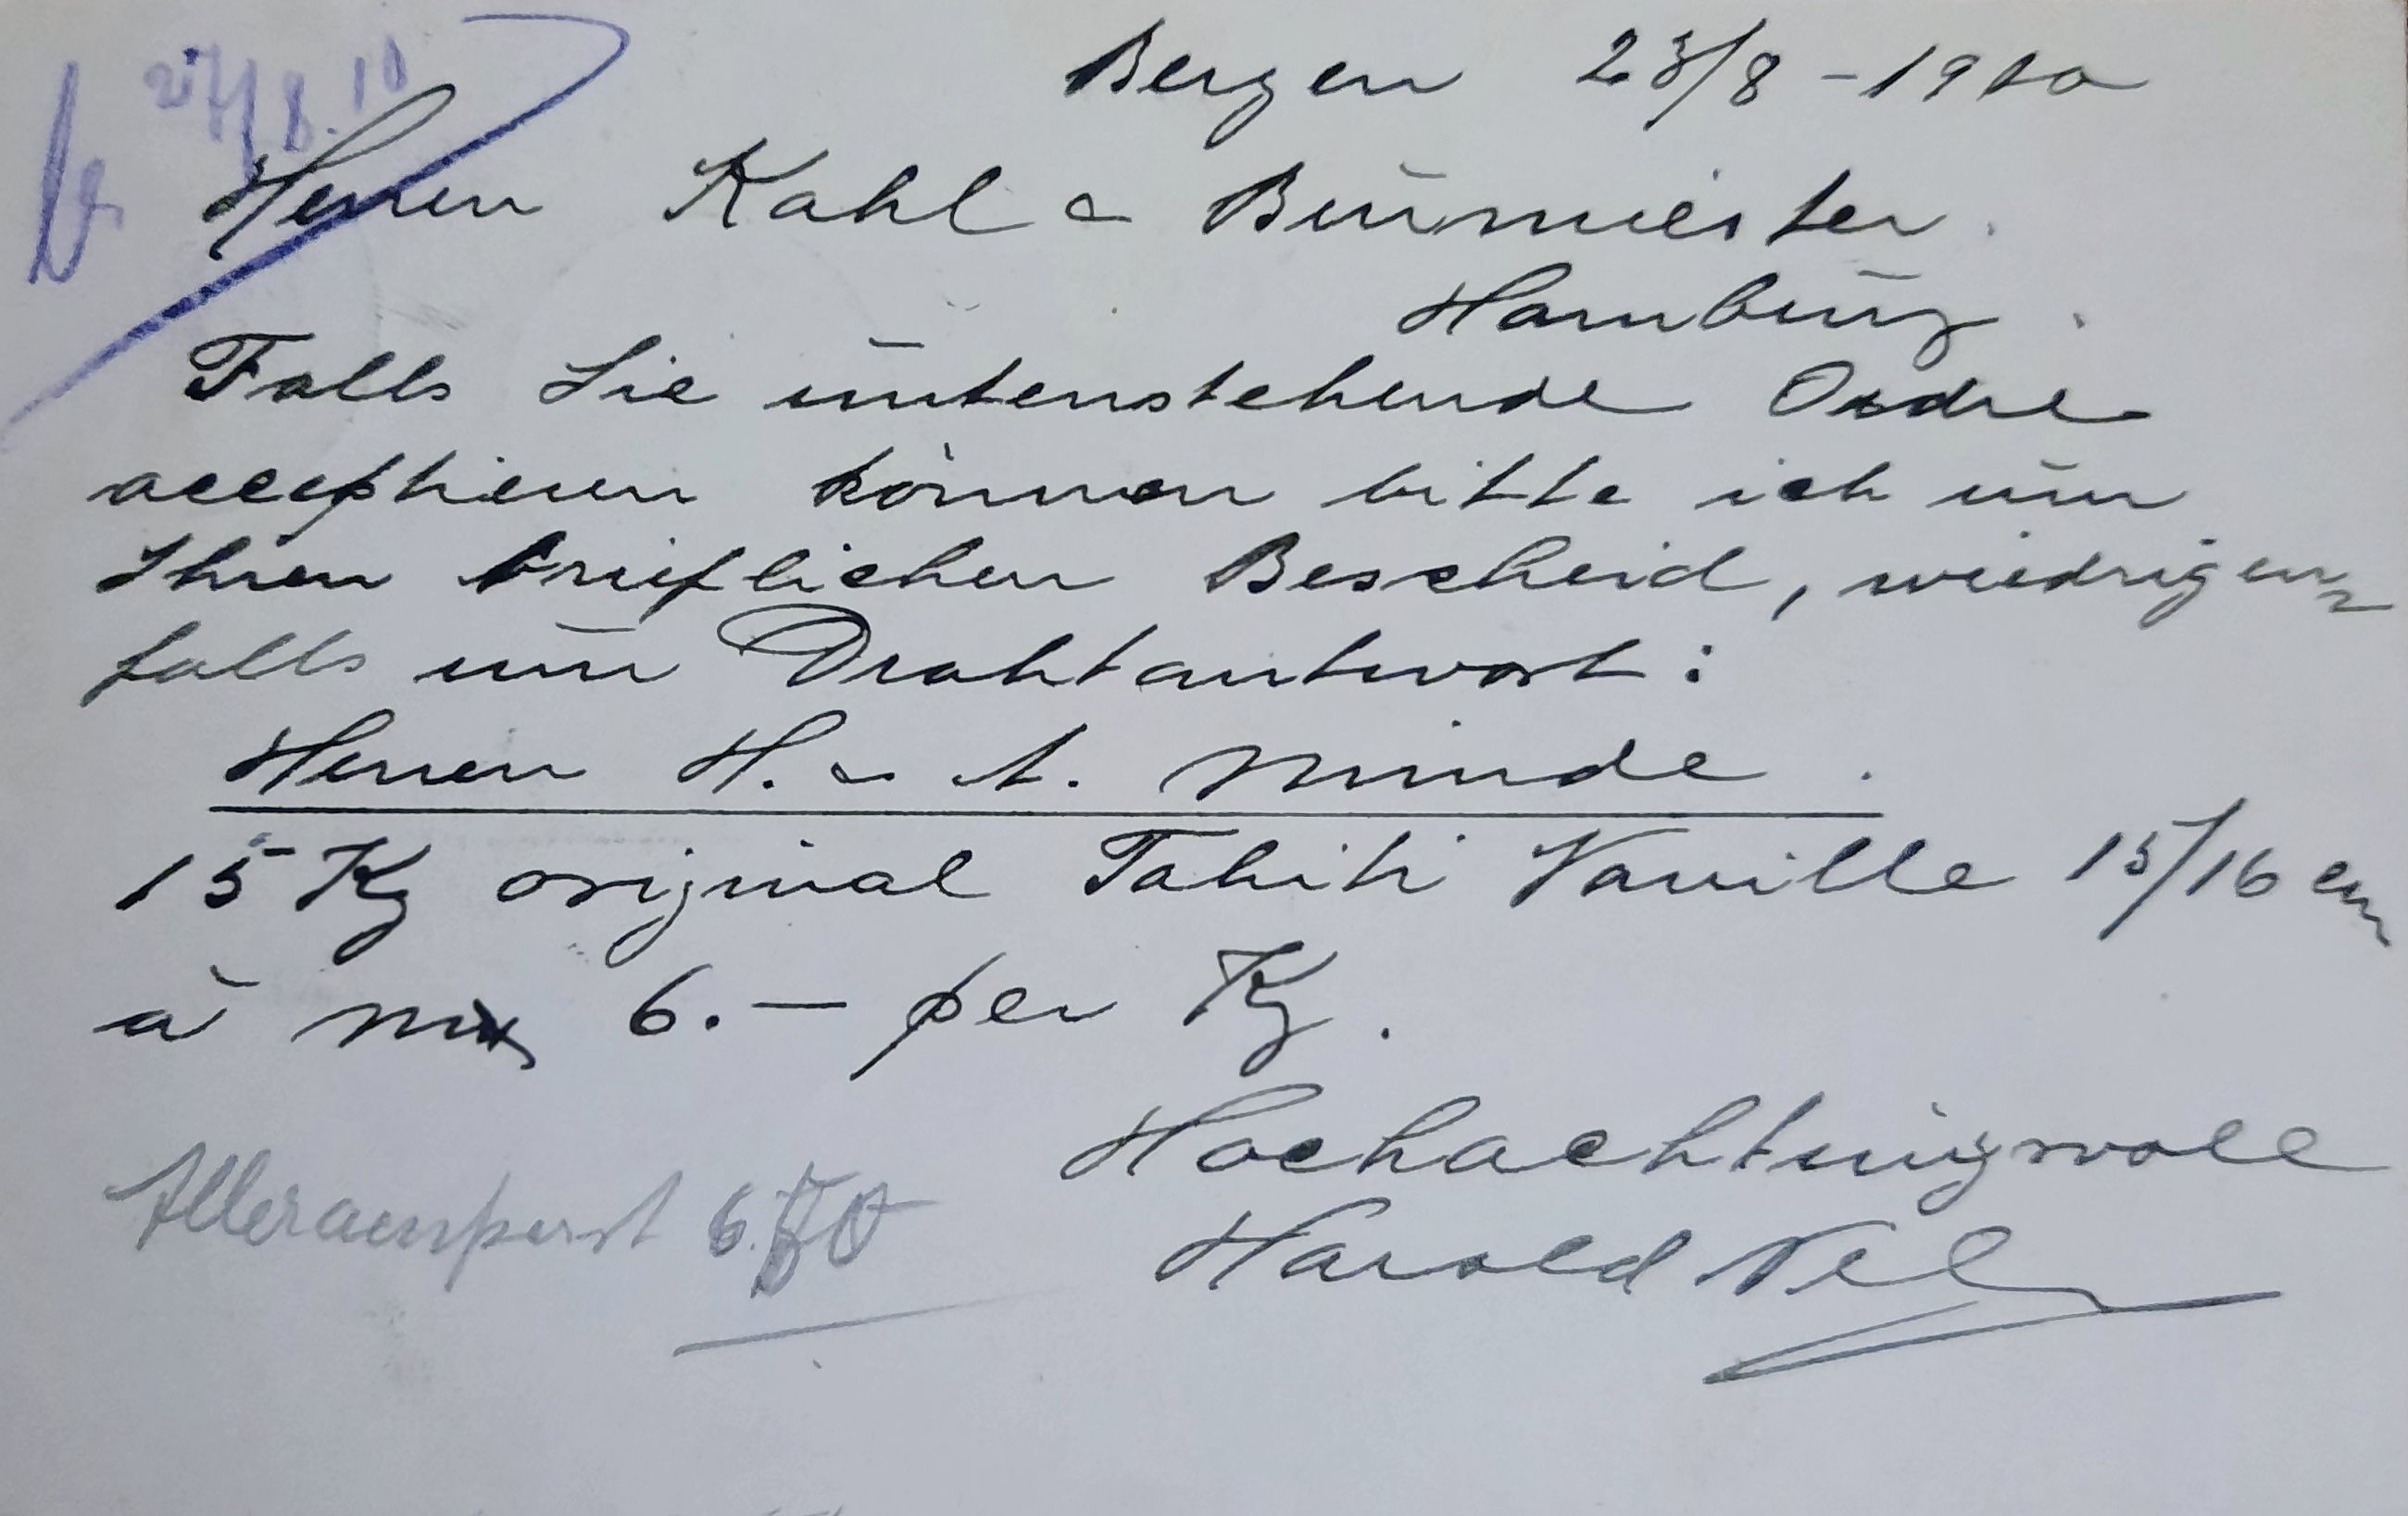 27/8.10
Bergen 23/8 - 1910
Herren Kahl & Burmeister.
Hamburg.
Falls Sie untenstehende Ordre
acceptieren können bitte ich um
Ihren brieflichen Bescheid, wiedrigen-
falls um Drahtantwort:
Herren H. & A. Minde.
15 Kg original Tahiti Vanille 15/16 cm
à M 6.— per Kg.
Hochachtungsvoll
Harold
6.50